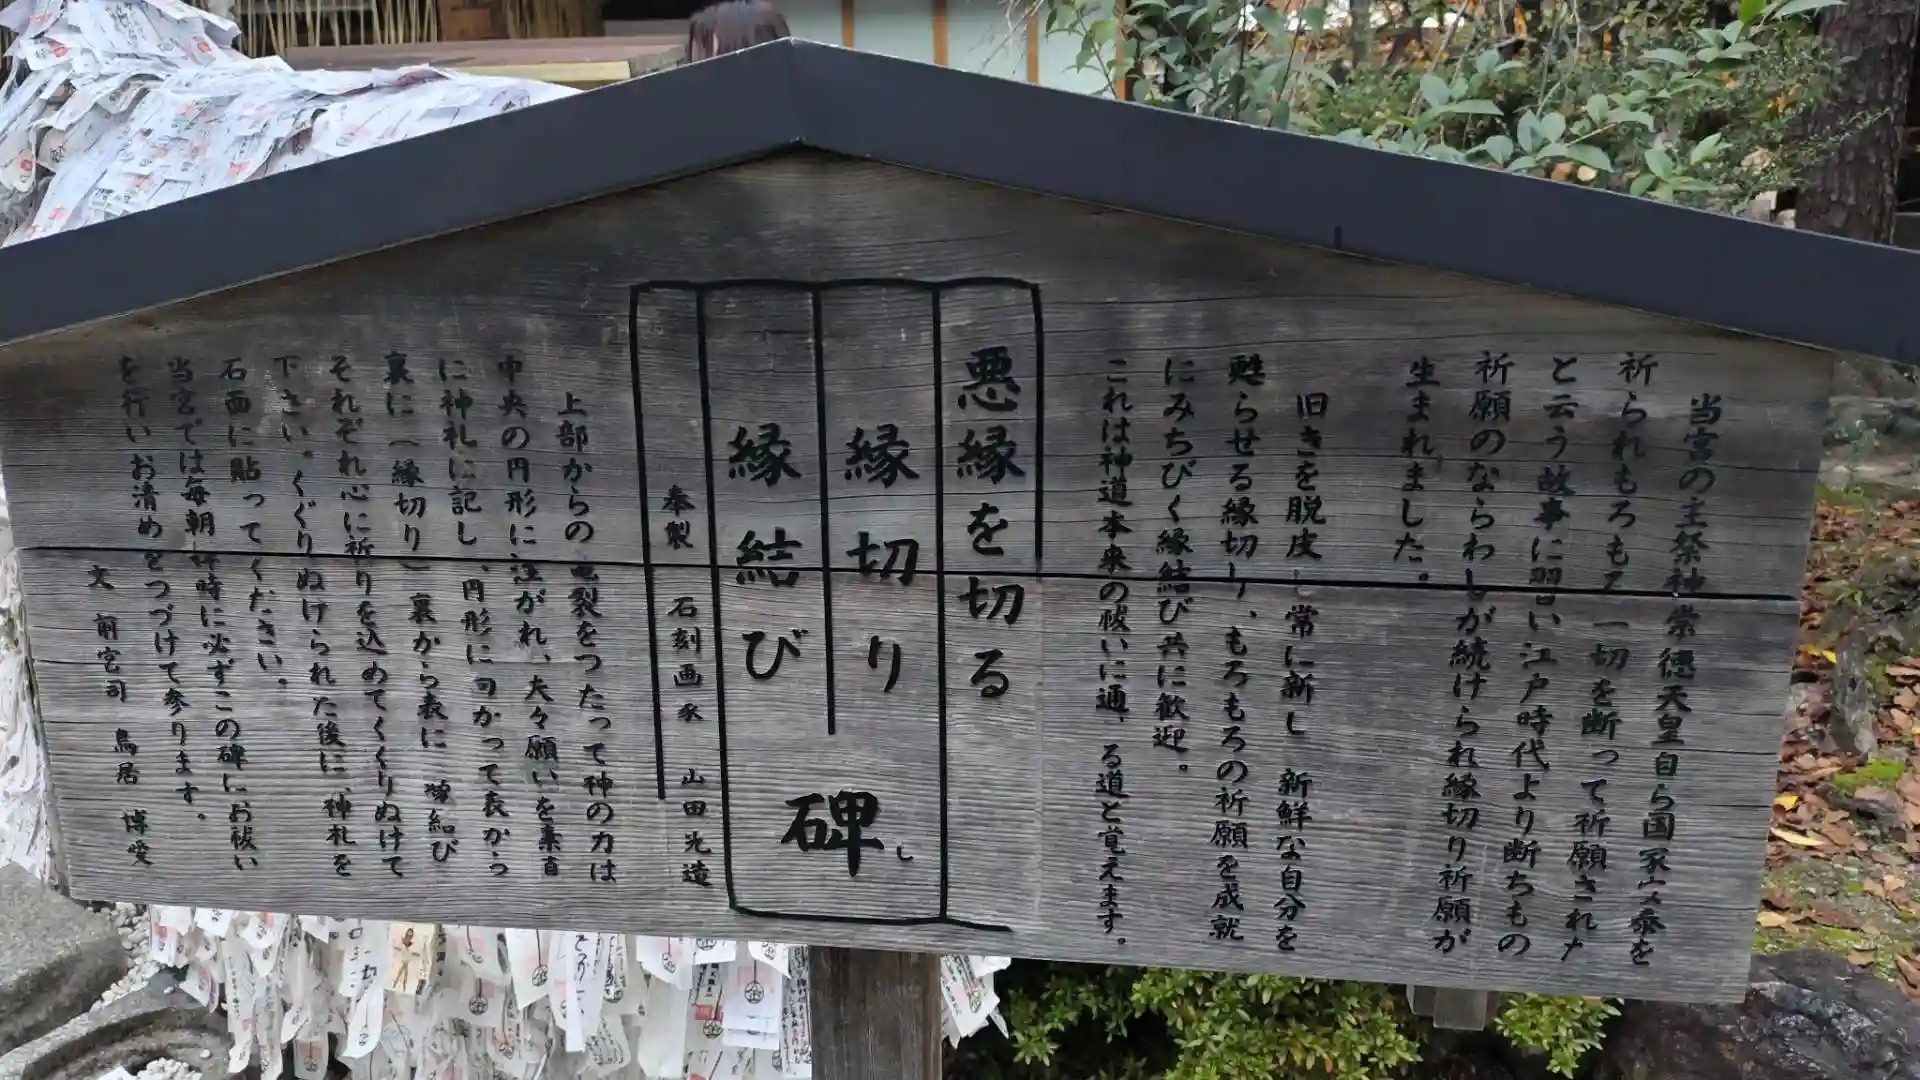 当宮の主祭神 崇徳天皇自ら国家安泰を
祈られもろもろ一切を断って祈願された
と云う故事に習い江戸時代より断ちもの
祈願のならわしが続けられ縁切り祈願が
生まれました。
旧きを脱皮し常に新し 新鮮な自分を
甦らせる縁切り、もろもろの祈願を成就
にみちびく縁結び共に歓迎。
これは神道本来の祓いに通ずる道と覚えます。
悪縁を切る
縁切り
縁結び
碑
し
奉製 石刻画家 山田光造
上部からの亀裂をつたって神の力は
中央の円形に注がれ、夫々願いを素直
に神札に記し、円形に向かって表から
裏に(縁切り)裏から表に 縁結び
それぞれ心に祈りを込めてくぐりぬけて
下さい。くぐりぬけられた後に、神札を
石面に貼ってください。
当宮では毎朝 時に必ずこの碑にお祓い
を行いお清めをつづけて参ります。
文 前宮司 鳥居 博愛